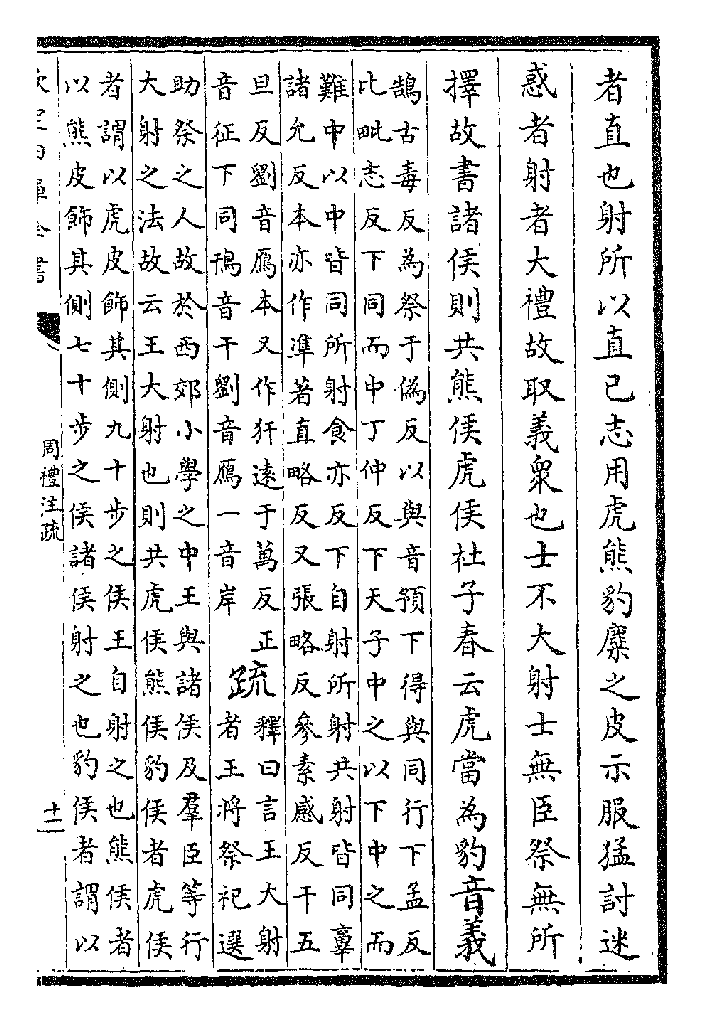 者直也射所以直己志用虎熊豹麋之皮示服猛討迷
惑者射者大禮故取義衆也士不大射士無臣祭無所
擇故書諸侯則共熊侯虎侯社子春云虎當為豹音義
鵠古毒反為祭于偽反以與音預下得與同行下孟反
比毗志反下同而中丁仲反下天子中之以下中之而
難中以中皆同所射食亦反下自射所射共射皆同𦎧
諸允反本亦作準著直略反又張略反參素感反干五
旦反劉音鴈本又作犴遠于萬反正
音征下同鳱音干劉音鴈一音岸
疏
釋曰言王大射
者王將祭祀選
助祭之人故於西郊小學之中王與諸侯及羣臣等行
大射之法故云王大射也則共虎侯熊侯豹侯者虎侯
者謂以虎皮飾其側九十步之侯王自射之也熊侯者
以熊皮飾其側七十步之侯諸侯射之也豹侯者謂以
欽定四庫全書
周禮注疏
十二